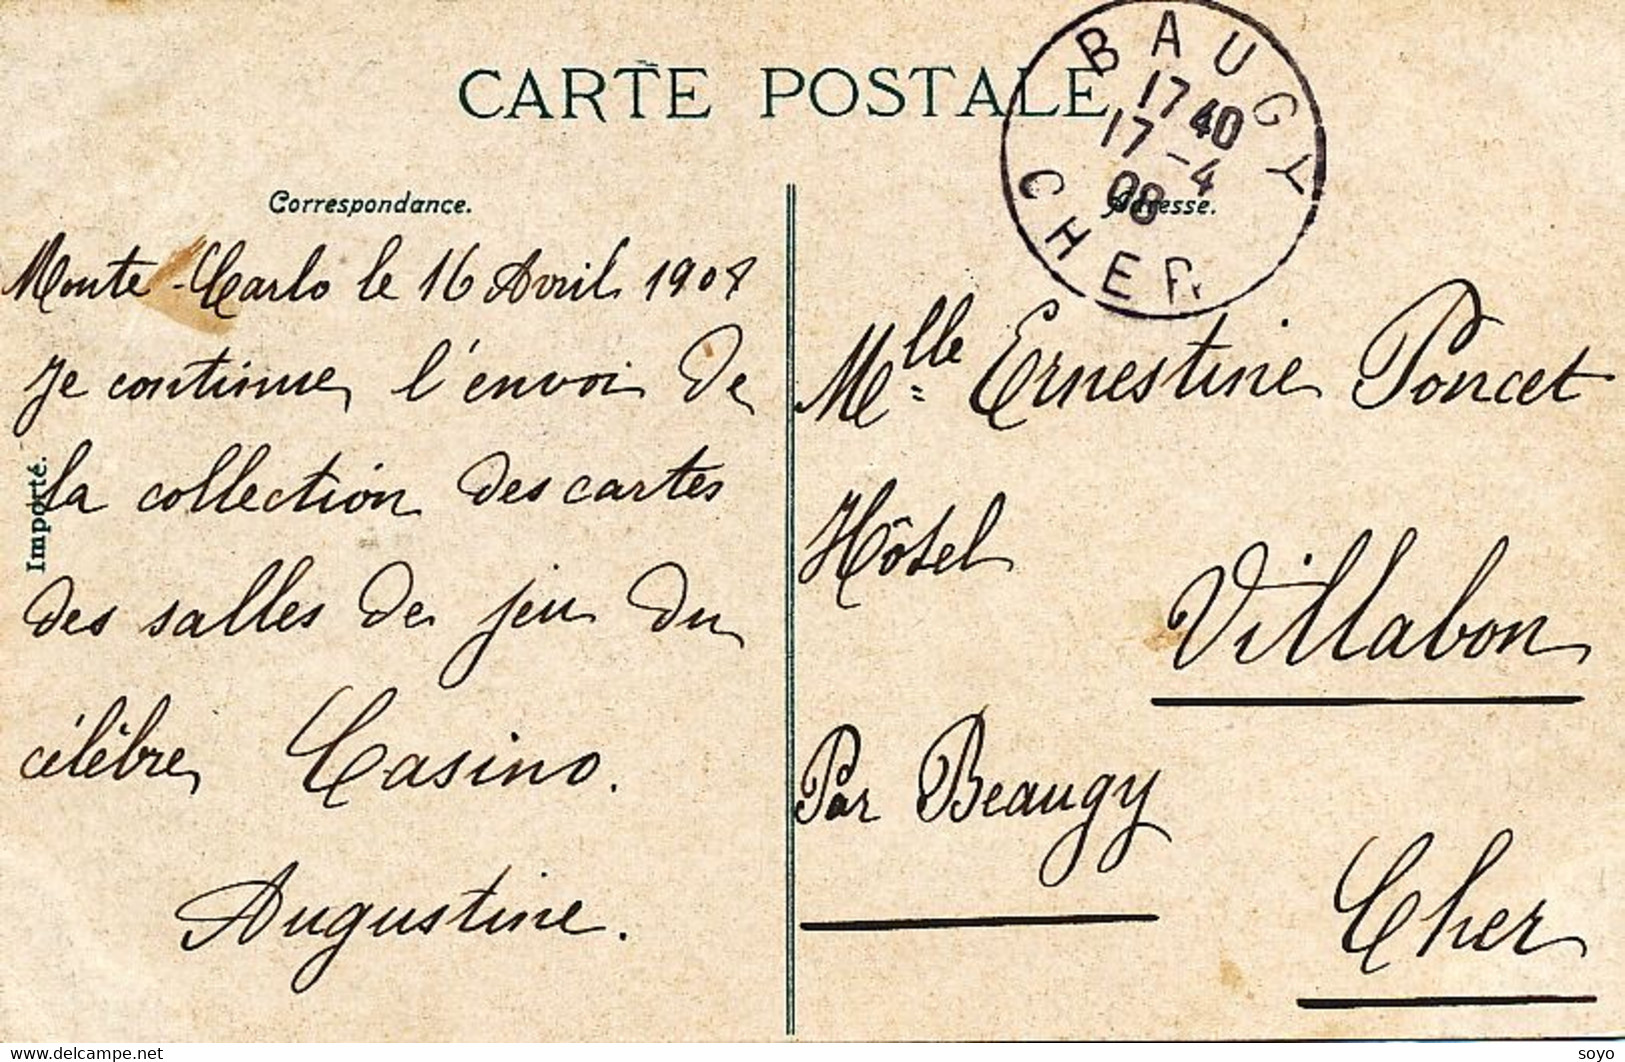 CARTE POSTALE
BAUGY
17 40
17 -4
08
CHER.
Correspondance.
Adresse.
Monte-Carlo le 16 Avril 1908
Je continue l'envoi de
la collection des cartes
des salles de jeu du
célèbre Casino.
Augustine.
Importé.
Mlle Ernestine Poncet
Hôtel
Villabon
Par Beaugy
Cher
www.delcampe.net
soyo